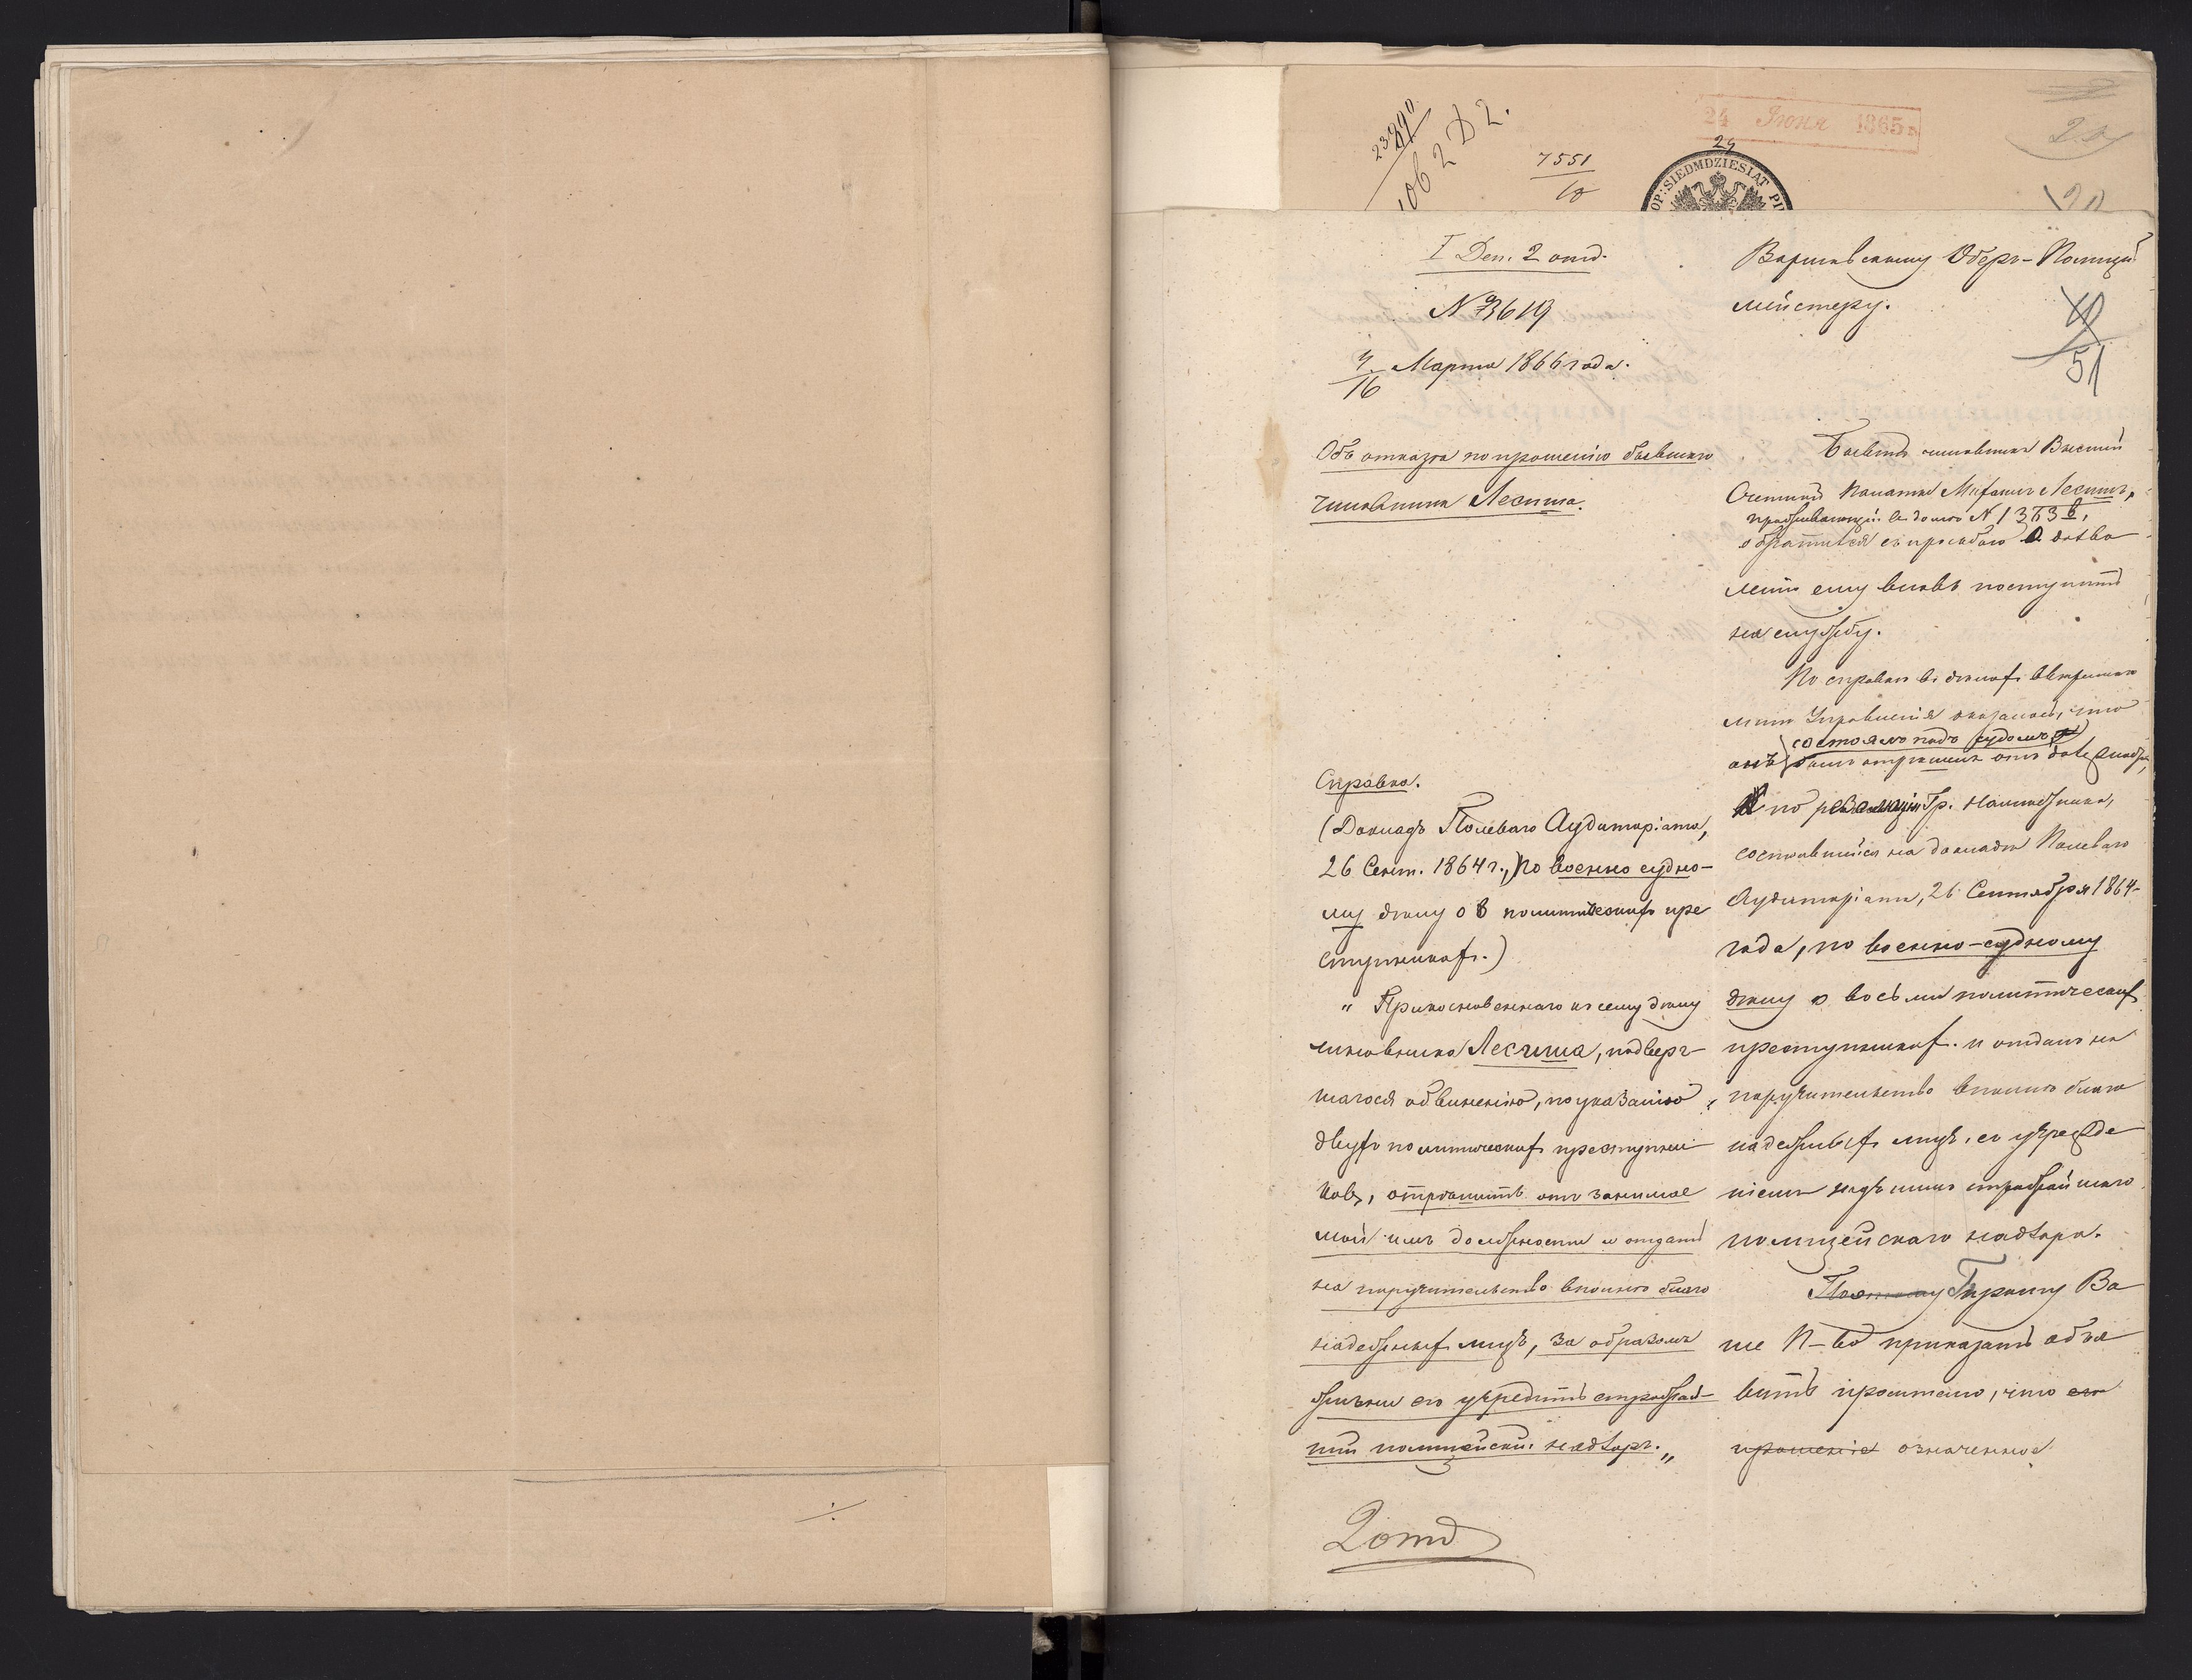 24 Июня 1865 г.
7551
OP: SIEDMDZIESIAT PI
I Деп. 2 отд.
№ 3619
4/16 Марта 1866 года.
Объ отказѣ по прошенію бывшаго
чиновника Лесиша.
Справка.
(Докладъ Полеваго Аудиторіата,
26 Сент. 1864 г., по военно судно-
му дѣлу о 8 политическихъ пре
ступникахъ.)
„ Прикосновеннаго къ сему дѣлу
чиновника Лесиша, подверг-
шагося обвиненію, по указанію
двухъ политическихъ преступни
ковъ, отрѣшить отъ занимае
мой имъ должности и отдать
на поручительство вполнѣ благо
надежныхъ лицъ, за образомъ
жизни его учредить строжай-
шій полицейскій надзоръ. „
2 отд
Варшавскому Оберъ-Полицій
мейстеру.
51
Бывшій чиновникъ Высшей
Счетной Палаты Лесишъ,
проживающій въ домѣ №
обратился съ просьбою о дозво
леніи ему вновь поступить
на службу.
По справкѣ въ дѣлахъ
Управленія оказалось, что
состоялъ подъ судомъ
онъ былъ отрѣшенъ отъ должности,
по резолюціи Гр. Намѣстника,
состоявшейся на докладѣ Полеваго
Аудиторіата, 26 Сентября 1864
года, по военно-судному
дѣлу о восьми политическихъ
преступникахъ и отданъ на
поручительство вполнѣ благо
надежныхъ лицъ, съ учрежде
ніемъ надъ нимъ строжайшаго
полицейскаго надзора.
Поэтому Прошу Ва
ше П-во приказать объя
вить просителю, что его
прошеніе означенное